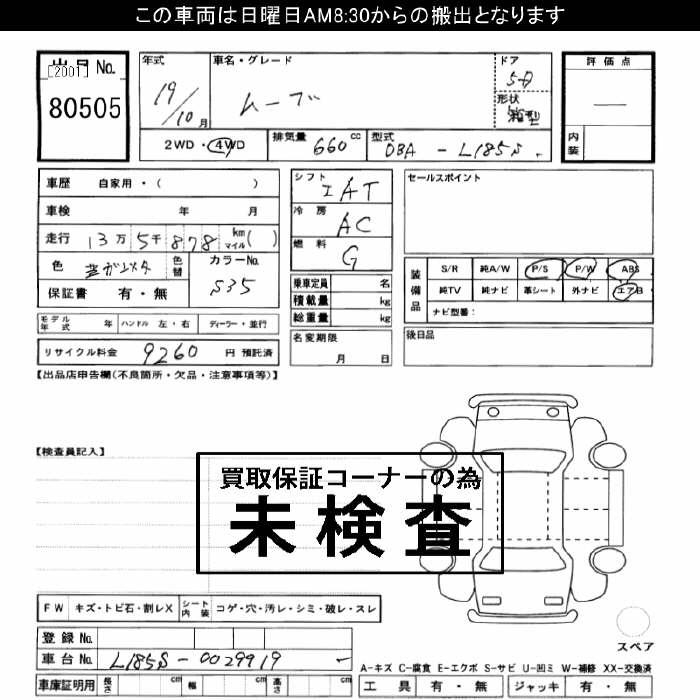 この車両は日曜日AM8:30からの搬出となります
出品 No.
[2001]
80505
年式
19/10 月
車名・グレード
ムーブ
ドア
5D
形状
箱型
2WD・4WD
排気量 660 cc
型式 DBA - L185S
評価点
—
内装
車歴 自家用・( )
車検 年 月
走行 13万 5千 878 km マイル ( )
色
色替
カラーNo.
S35
保証書 有・無
モデル年式 年 ハンドル 左・右 ディーラー・並行
リサイクル料金 9260 円 預託済
シフト IAT
冷房 AC
燃料 G
乗車定員 名
積載量 kg
総重量 kg
名変期限
月 日
セールスポイント
装備品
S/R 純A/W P/S P/W ABS
純TV 純ナビ 革シート 外ナビ エアB
ナビ型番:
後日品
【出品店申告欄(不良箇所・欠品・注意事項等)】
【検査員記入】
買取保証コーナーの為
未検査
FW キズ・トビ石・割レX シート内装 コゲ・穴・汚レ・シミ・破レ・スレ
登録 No.
車台 No. L185S-0029919
車庫証明用 長さ cm 幅 cm 高さ cm
スペア
A-キズ C-腐食 E-エクボ S-サビ U-凹ミ W-補修 XX-交換済
工具 有・無 ジャッキ 有・無